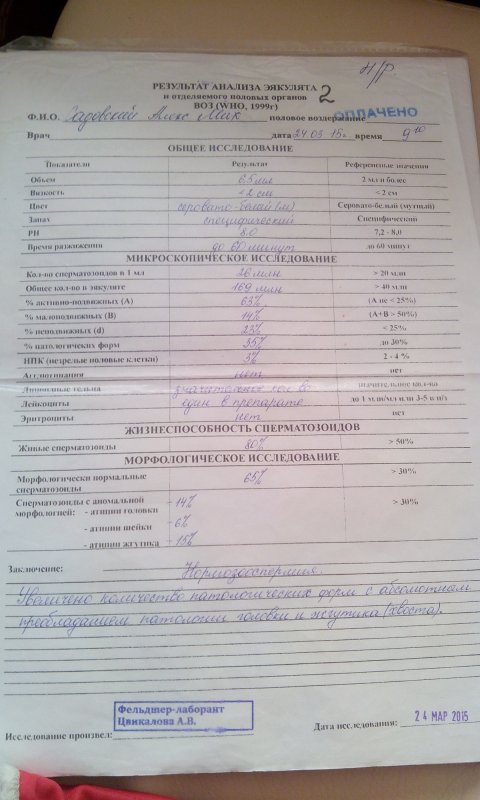 н/р
РЕЗУЛЬТАТ АНАЛИЗА ЭЯКУЛЯТА 2
и отделяемого половых органов
ВОЗ (WHO, 1999г) ОПЛАЧЕНО
Ф.И.О. Садовский Алекс Мих половое воздержание
Врач дата 24.03.15г. время 9 10
ОБЩЕЕ ИССЛЕДОВАНИЕ
Показатели Результат Референсные значения
Объем 6.5 мл 2 мл и более
Вязкость < 2 см < 2 см
Цвет серовато-белый (м) Серовато-белый (мутный)
Запах специфический Специфический
PH 8.0 7,2 - 8,0
Время разжижения до 60 минут до 60 минут
МИКРОСКОПИЧЕСКОЕ ИССЛЕДОВАНИЕ
Кол-во сперматозоидов в 1 мл 26 млн > 20 млн
Общее кол-во в эякуляте 169 млн > 40 млн
% активно-подвижных (А) 63% (А не < 25%)
% малоподвижных (В) 14% (А+В > 50%)
% неподвижных (d) 23% < 25%
% патологических форм 35% до 30%
НПК (незрелые половые клетки) 3% 2 - 4 %
Агглютинация нет нет
Липоидные тельца значительное кол-во значительное кол-во
Лейкоциты един в препарате до 1 млн/мл или 3-5 в п/з
Эритроциты нет нет
ЖИЗНЕСПОСОБНОСТЬ СПЕРМАТОЗОИДОВ
Живые сперматозоиды 80% > 50%
МОРФОЛОГИЧЕСКОЕ ИССЛЕДОВАНИЕ
Морфологически нормальные 65% > 30%
сперматозоиды
Сперматозоиды с аномальной - 14% > 30%
морфологией: - атипии головки
- атипии шейки - 6%
- атипии жгутика - 15%
Заключение: Нормозооспермия.
Увеличено количество патологических форм с абсолютным
преобладанием патологии головки и жгутика (хвоста).
Фельдшер-лаборант
Цвикалова А.В.
Исследование произвел: Дата исследования: 24 МАР 2015